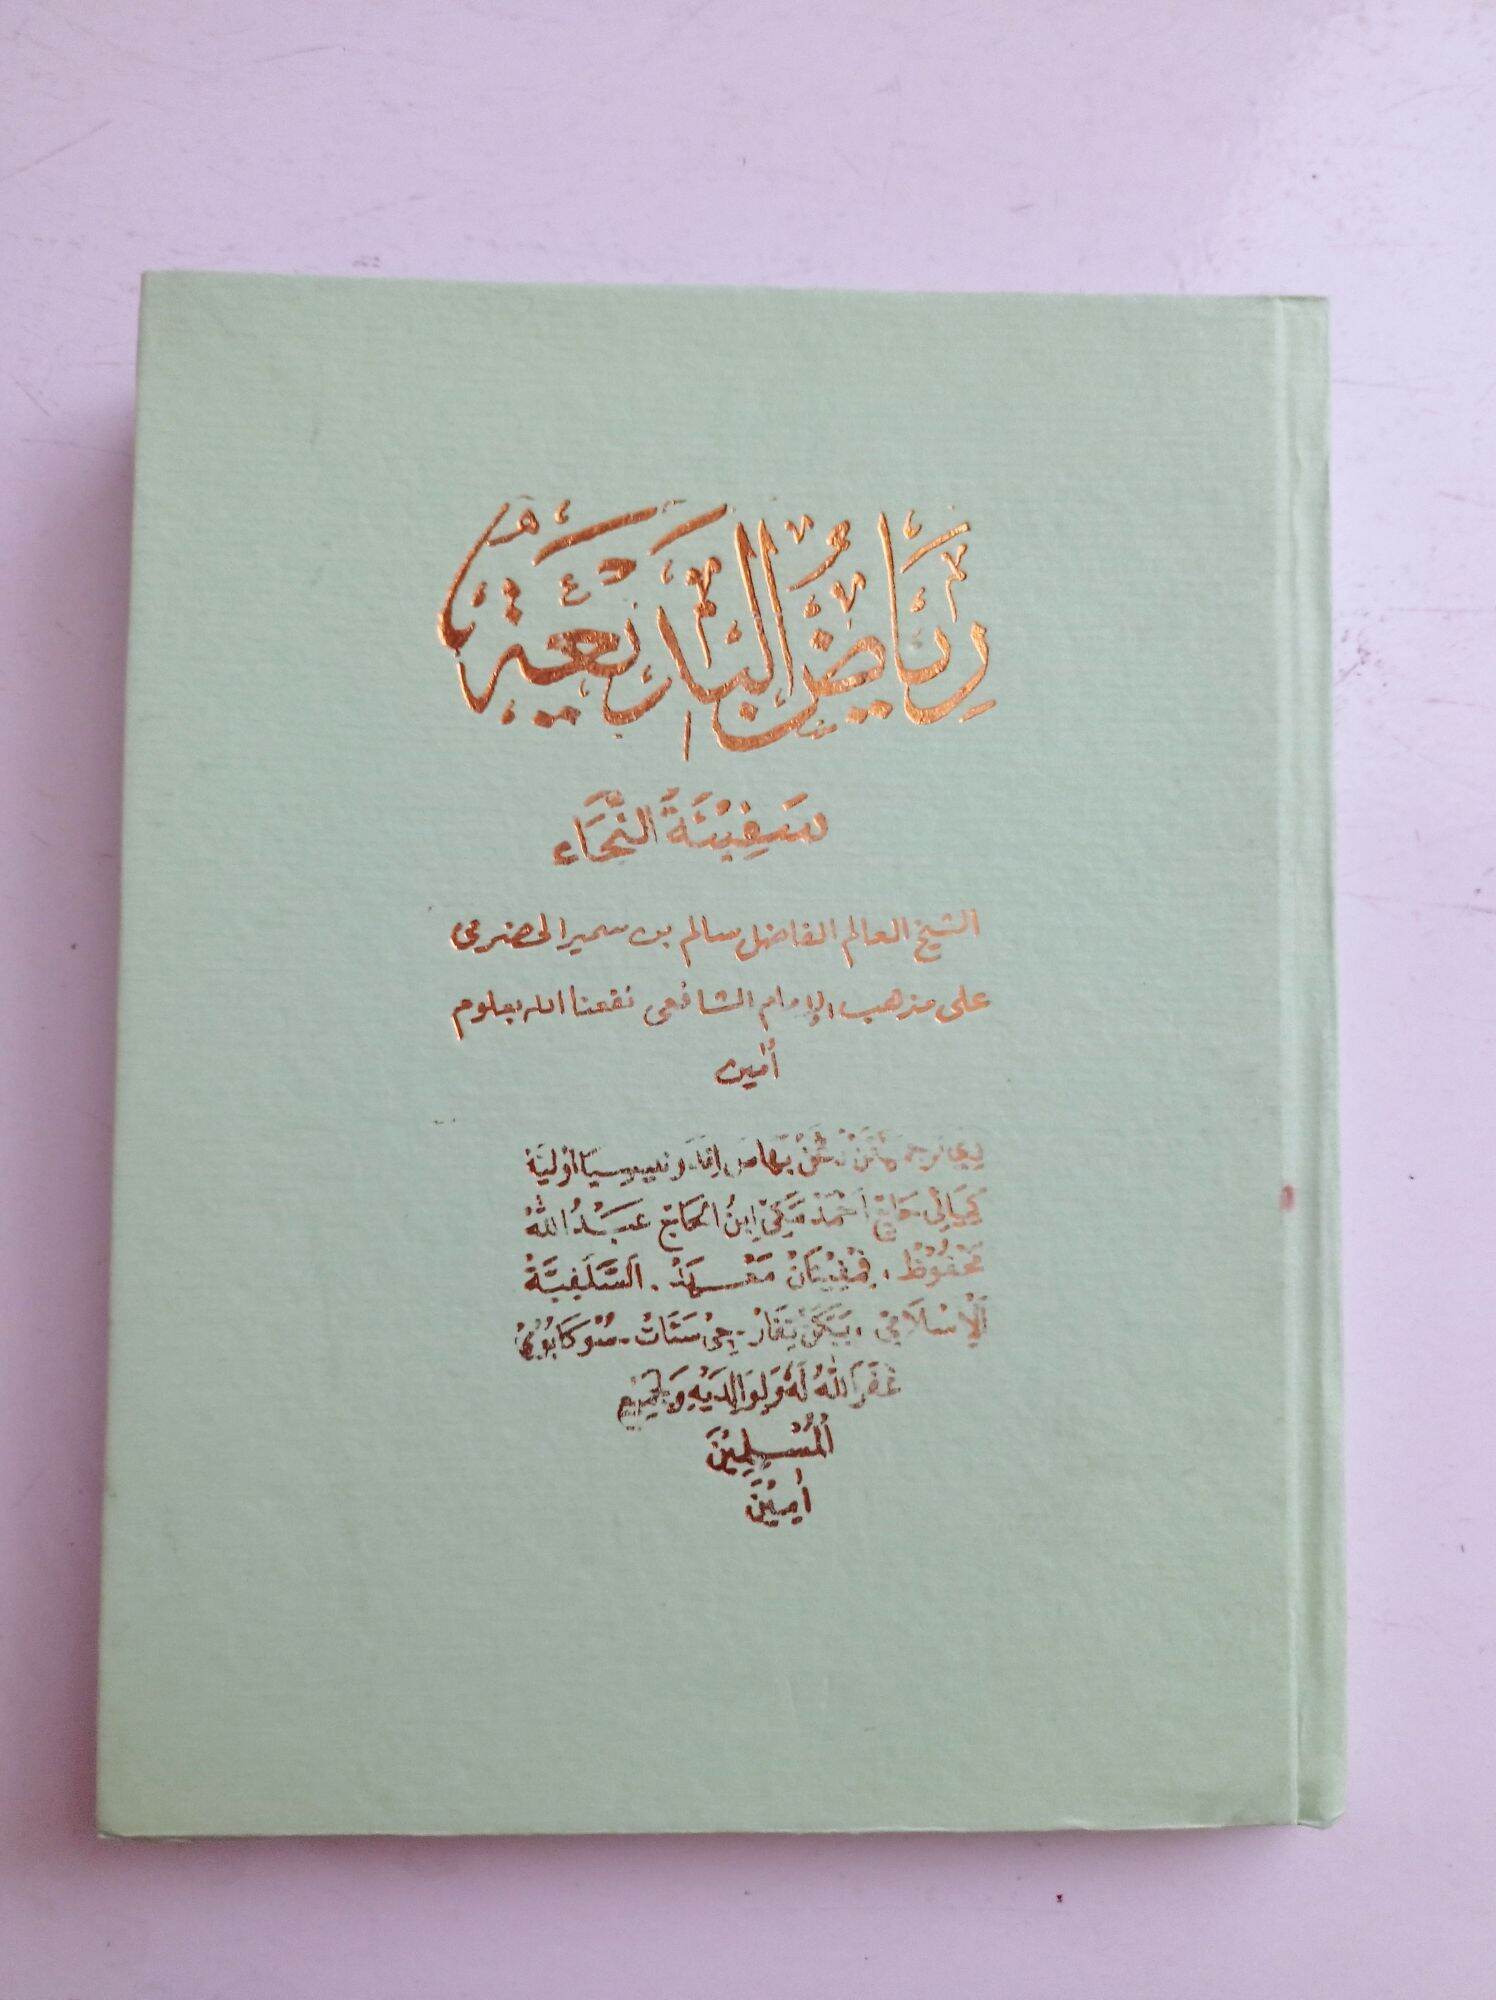 رِيَاضُ الْبَدِيْعَةِ
سَفِيْنَةُ النَّجَاء
الشيخ العالم الفاضل سالم بن سمير الحضرمي
على مذهب الإمام الشافعى نفعنا الله بعلوم
أمين
دي ترجمهكن بهاس إندونيسيا أوليه
كياهي حاج أحمد مكي ابن الحاج عبد الله
محفوظ . ڤمڤينان معهد . السلفية
الإسلامي . بابكن تيڤار . چيساات . سوكابومي
غَفَرَ اللهُ لَهُ وَلِوَالِدَيْهِ وَلِجَمِيْعِ
الْمُسْلِمِيْنَ
أمِيْنَ